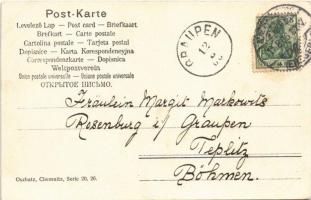 Post-Karte
Levelező Lap — Post card — Briefkaart
Brefkort — Carte postale
Cartolina postale — Tarjeta postal
Dopisnice — Karta Korespondencyjna
Correspondenzkarte — Dopisnica
Weltpostverein
Union postale universelle — Unione postale universale
ОТКРЫТОЕ ПИСЬМО.
GRAUPEN
12
Fräulein Margit Markowits
Rosenburg i/ Graupen
Teplitz
Böhmen.
Oschatz, Chemnitz, Serie 20, 26.